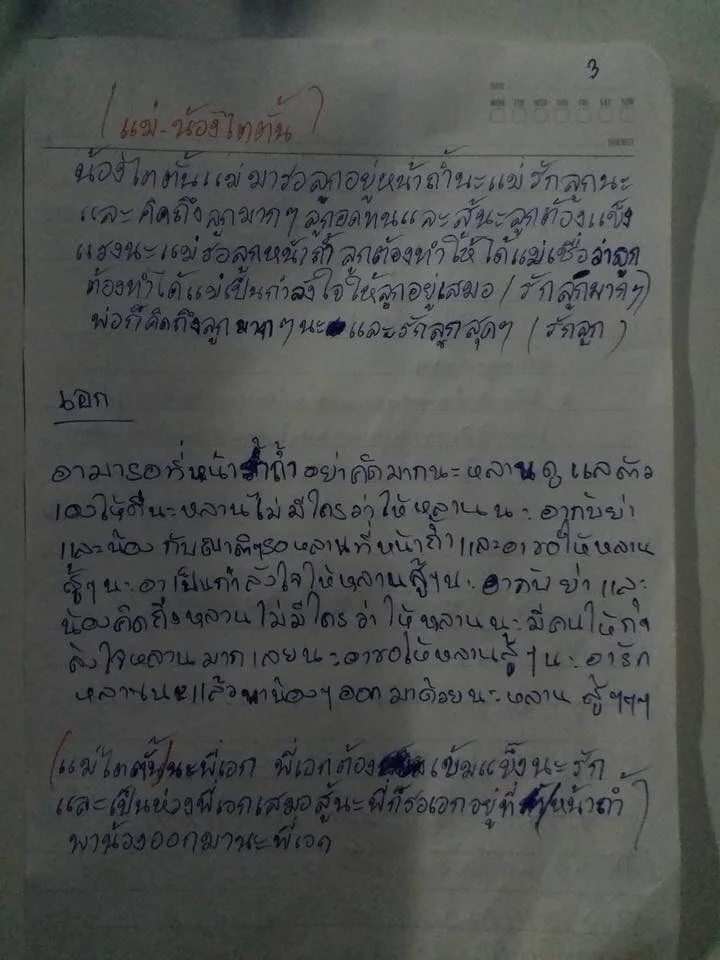 3
MON TUE WED THU FRI SAT SUN
SUBJECT
(แม่-น้องไตตั้น)
น้องไตตั้นแม่มารอลูกอยู่หน้าถ้ำนะแม่รักลูกนะ
และคิดถึงลูกมากๆลูกอดทนและสู้นะลูกต้องแข็ง
แรงนะแม่รอลูกหน้าถ้ำลูกต้องทำให้ได้แม่เชื่อว่าลูก
ต้องทำได้แม่เป็นกำลังใจให้ลูกอยู่เสมอ (รักลูกมากๆ)
พ่อก็คิดถึงลูกมากๆนะและรักลูกสุดๆ (รักลูก)
เอก
อามารอที่หน้าถ้ำอย่าคิดมากนะหลานดูแลตัว
เองให้ดีนะหลานไม่มีใครว่าให้หลานนะอากับย่า
และน้องกับญาติๆรอหลานที่หน้าถ้ำและอาขอให้หลาน
สู้ๆนะอาเป็นกำลังใจให้หลานสู้ๆนะอากับย่าและ
น้องคิดถึงหลานไม่มีใครว่าให้หลานนะมีคนให้กำ
ลังใจหลานมากเลยนะอาขอให้หลานสู้ๆนะอารัก
หลานนะแล้วพาน้องๆออกมาด้วยนะหลาน สู้ๆๆๆ
(แม่ไตตั้น)นะพี่เอก พี่เอกต้องเข้มแข็งนะรัก
และเป็นห่วงพี่เอกเสมอสู้นะพี่ก็รอเอกอยู่ที่หน้าถ้ำ)
พาน้องออกมานะพี่เอก